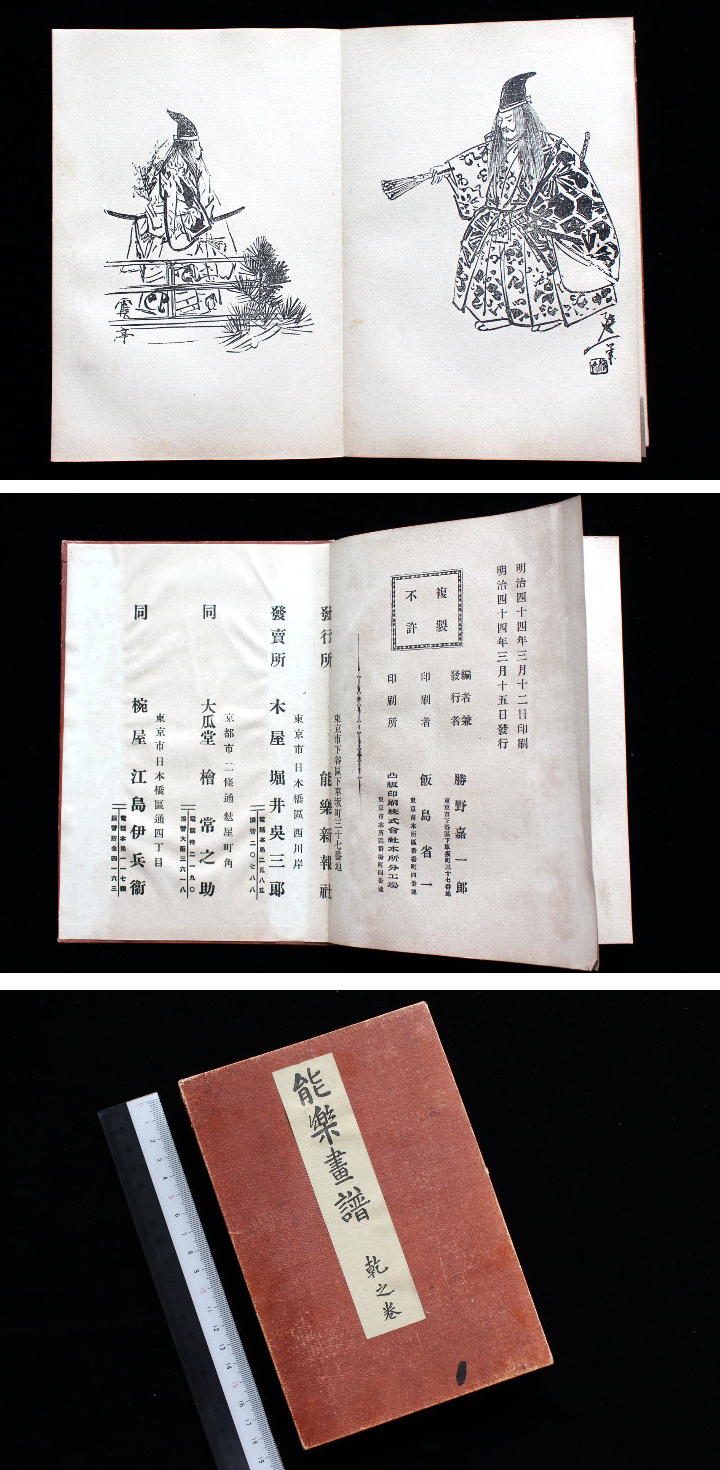 霞亭
筆
明治四十四年三月十二日印刷
明治四十四年三月十五日發行
複製
不許
編者兼
發行者
勝野嘉一郎
東京市下谷區下車坂町三十七番地
印刷者
飯島省一
東京市本所區番場町四番地
印刷所
凸版印刷株式會社本所分工場
東京市本所區番場町四番地
東京市下谷區下車坂町三十七番地
發行所 能樂新報社
東京市日本橋區西川岸
發賣所 木屋 堀井吳三郎
電話本局二五八五
振替二〇七八八
京都市二條通麩屋町角
同 大瓜堂 檜常之助
電話特二一九〇
振替大阪三六一八
東京市日本橋區通四丁目
同 椀屋 江島伊兵衞
電話本局一一七四
振替貯金四一六三
能樂畫譜
乾之卷
1 2 3 4 5 6 7 8 9 10 11 12 13 14 15 16 17 18 19